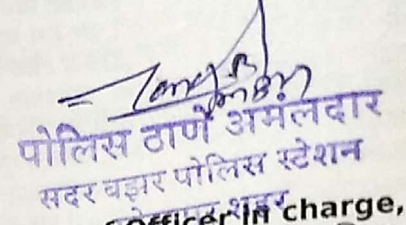 पोलिस ठाणे अमंलदार
सदर बझार पोलिस स्टेशन
शहर
Officer in charge,